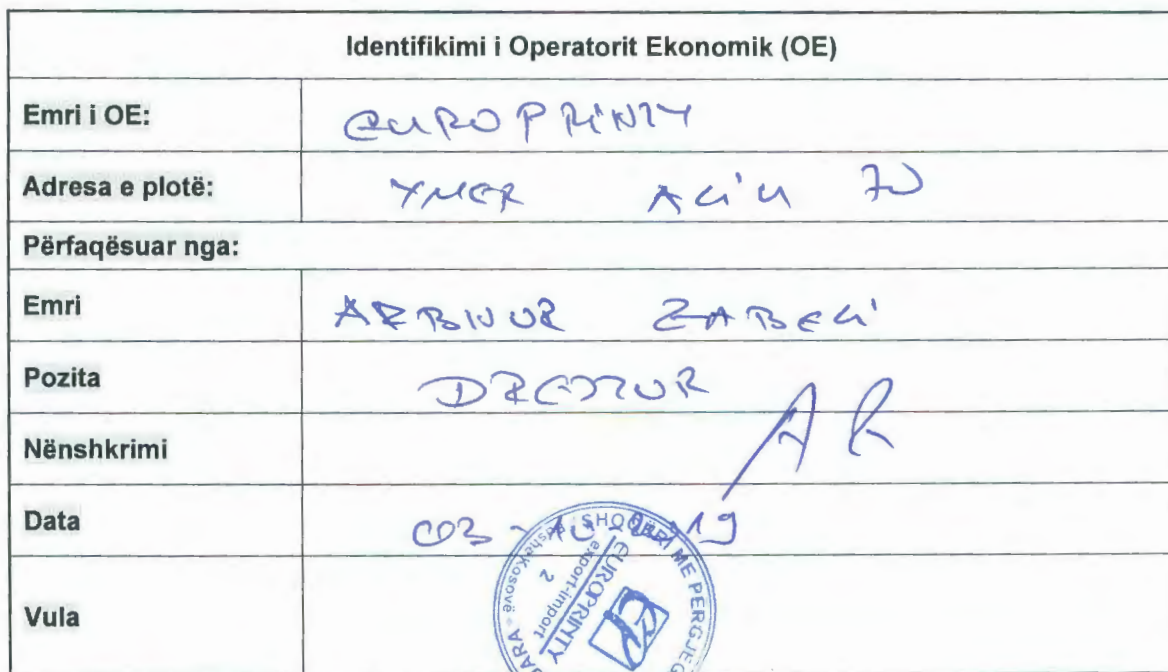 Identifikimi i Operatorit Ekonomik (OE)
Emri i OE: EUROPRINTY
Adresa e plotë: YMER ALIU
Përfaqësuar nga:
Emri ARBNOR ZABELI
Pozita DREJTOR
Nënshkrimi
Data 03-10-2019
Vula
SHOQËRI ME PERGJEG
EUROPRINTY
export-import
2
Kosovë